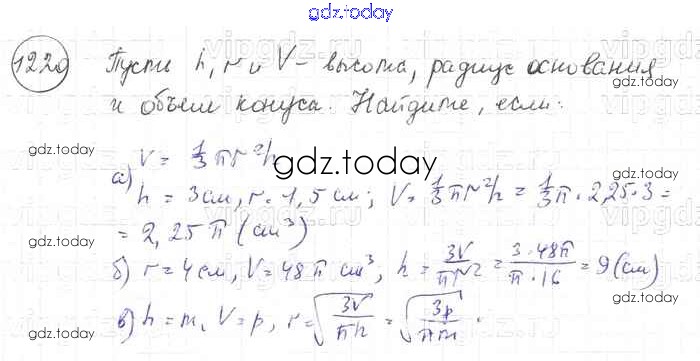 gdz.today
1220 Пусть h, r и V – высота, радиус основания
и объем конуса. Найдите, если:
gdz.today
gdz.today
V = 1/3 πr²h
gdz.today
а) h = 3см, r = 1,5 см; V = 1/3 πr²h = 1/3 π · 2,25 · 3 =
gdz.today
= 2,25π (см³)
б) r = 4см, V = 48π см³, h = 3V/πr² = 3·48π/π·16 = 9 (см)
gdz.today
gdz.today
в) h = m, V = p, r = √(3V/πh) = √(3p/πm).
gdz.today